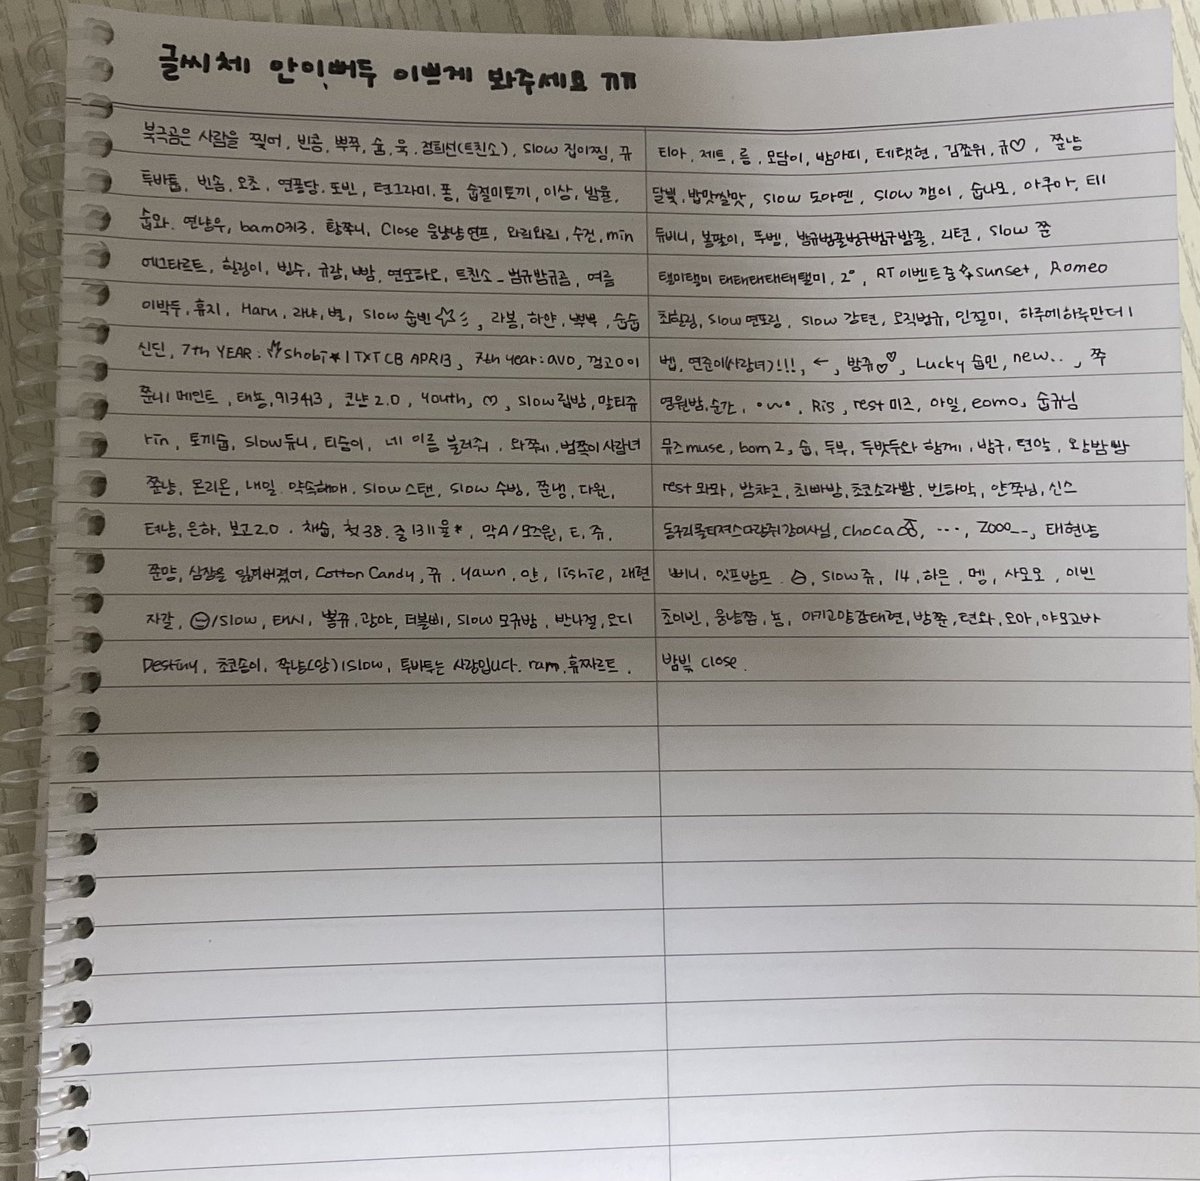 글씨체 안잇버두 이쁘게 봐주세요 ㄲㄲ
북극곰은 사람을 찢어, 빈콩, 뿌쭈, 숨, 욱, 정희선(트친소), slow 집이찡, 뀨
투바툡, 빈솜, 오조, 연퐁당, 또빈, 턴그라미, 퐁, 숩절미토끼, 이상, 밤율,
숩와, 연냥우, bam0313, 탐쭈니, Close 웅냥냥연프, 와리와리, 수건, min
에그타르트, 힐링이, 빔수, 규잠, 빰, 연모하오, 트친소_범규밤규곰, 여름
이박두, 휴지, Haru, 라냐, 별, slow 숩빈, 라봉, 하얀, 뿌뿌, 숩숩
신딘, 7th YEAR: Shobi * I TXT CB APR13, 7th year: avo, 껌고0이
쭌니 메인트, 태뇽, 913413, 코냔 2.0, youth, ♡, slow립밤, 말티쥬
rin, 토끼숩, slow듀니, 티숭이, 네 이름 불러줘, 와쭈네, 범쪽이사람녀
쭌냥, 온리온, 내일, 약속해애, slow스탠, slow 수빙, 쭌냉, 다원,
텨냥, 은하, 보고2.0, 채숩, 첫38, 중1311율*, 막A/모즈원, E, 쥬,
쭌양, 심장을 잃어버렸어, Cotton Candy, 뀨, yawn, 얀, lishie, 래련
자갈, ☺/slow, 태시, 뽈뀨, 광야, 더블비, slow 모규밤, 반나절, 오디
Destiny, 초코송이, 쭈냥(앙)Islow, 투바투는 사랑입니다. ram, 휴짜르트.
티아, 제트, 름, 모담이, 밤아띠, 테탯현, 김쬬위, 규♡, 쭌냥
달빛, 밥맛쌀맛, slow 도아연, slow 깽이, 숩나모, 아쿠아, 테
듀비니, 볼팔이, 뚜벵, 밤규범꿀범구범구밤꿀, 리텬, slow 쭌
탤미탤미 태태태태태탤미, 2°, RT 이벤트중 sunset, Romeo
최힐링, slow 연또링, slow 강텬, 오직범규, 인절미, 하루에하루만더
벱, 연준이(사랑녀)!!!, ←, 밤쥬♡, Lucky 숩민, new.., 쭈
영원밤, 순간, •w•, Ris, rest 미즈, 아일, eomo, 숩규님
뮤즈muse, bom 2, 숩, 두부, 두밧두와 함께, 밤구, 텬알, 왕밤빵
rest 와와, 밤챠코, 최빠방, 초코소라빵, 빈타악, 얀쭈님, 신스
동구리몰티져스다람쥐강아사님, choca, ..., zooo__, 태현냥
삐니, 잇프밤프, slow 쥬, 14, 하은, 멩, 사모오, 이빈
초이빈, 웅냥쭘, 뇽, 아기고양감태현, 방쭌, 텬와, 오아, 야모고바
밤빛 close.